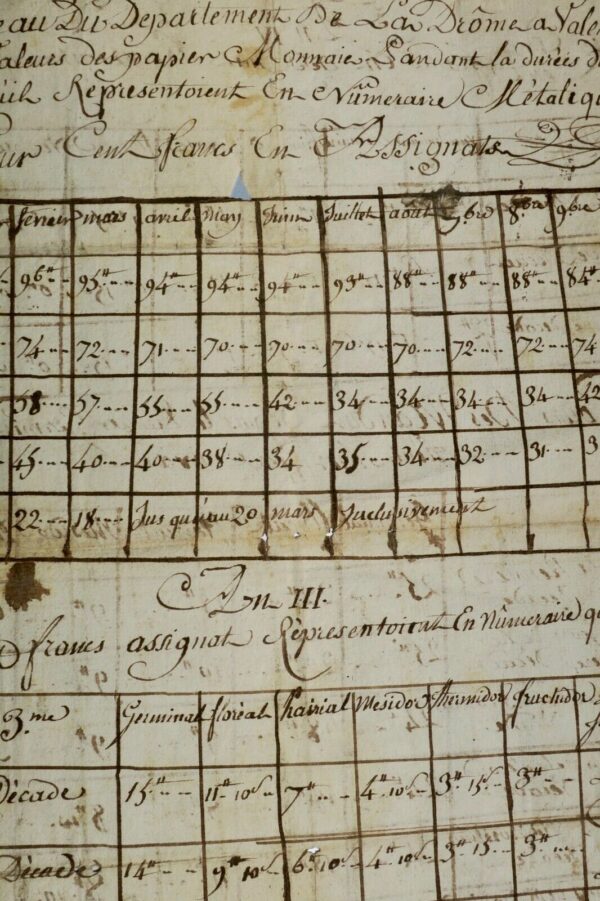 eau Du Departement De La Drôme a Valen
Valeurs des papier Monnaie Pandant la durées d
uil Représentoient En Nûmeraire Métaliqu
our Cent francs En Assignats
février mars avril may Juin Juillet aout 7bre 8bre 9bre
96# 95# 94# 94# 94# 93# 88# 88# 88# 84#
74 72 71 70 70 70 70 72 72 74
58 57 55 55 42 34 34 34 34 42
45 40 40 38 34 35 34 32 31 3
22 18 Jus qu'au 20 mars Inclusivement
An III.
francs assignat Réprésentoient En Nûmeraire qu
3.me Germinal floréal Prairial Mesidor thermidor fructidor
Décade 15# 11# 10s 7# 4# 10s 3# 15s 3#
Décade 14# 9# 10s 6# 10s 4# 10s 3# 15 3#